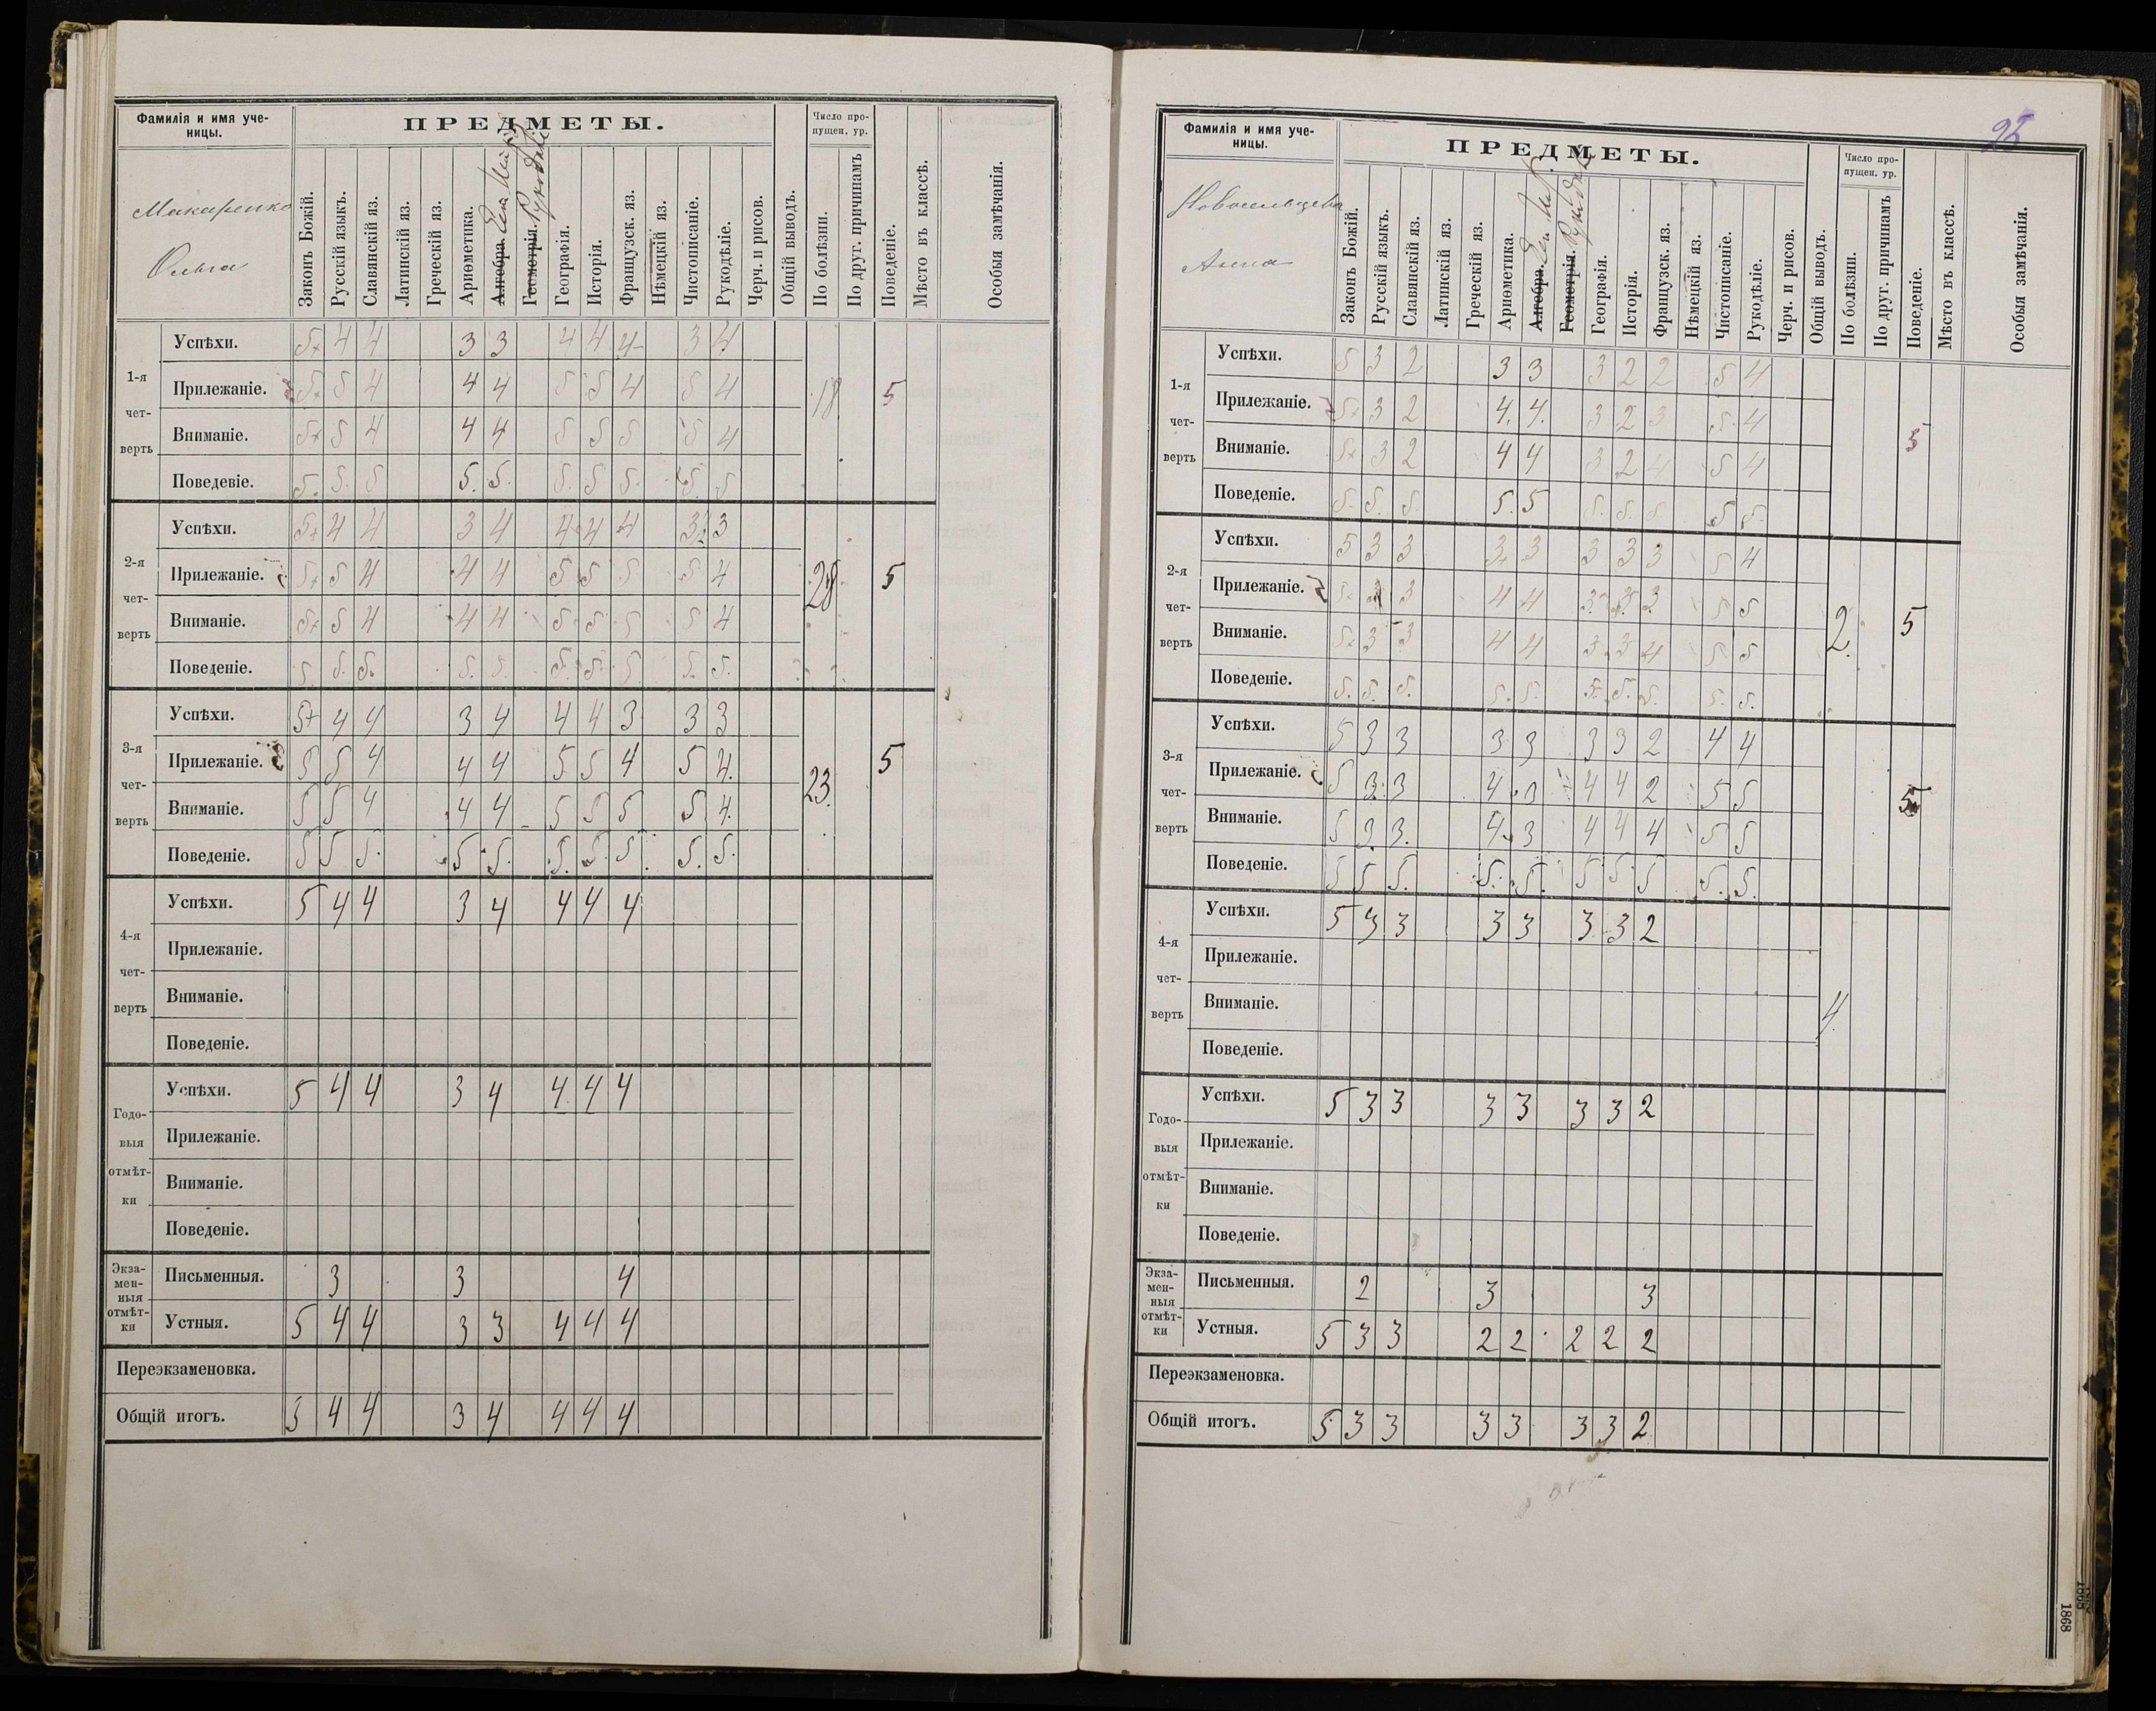 Фамилія и имя уче-
ницы.
ПРЕДМЕТЫ.
Число про-
пущен. ур.
Макаренко
Ольга
Законъ Божій.
Русскій языкъ.
Славянскій яз.
Латинскій яз.
Греческій яз.
Ариѳметика.
Алгебра.
Геометрія.
Географія.
Исторія.
Французск. яз.
Нѣмецкій яз.
Чистописаніе.
Рукодѣліе.
Черч. и рисов.
Общій выводъ.
По болѣзни.
По друг. причинамъ
Поведеніе.
Мѣсто въ классѣ.
Особыя замѣчанія.
1-я чет-верть
Успѣхи. 5+ 4 4 3 3 4 4 4- 3 4
Прилежаніе. 5+ 5 4 4 4 5 5 4 5 4 18 5
Вниманіе. 5+ 5 4 4 4 5 5 5 5 4
Поведевіе. 5. 5. 5 5. 5. 5. 5 5. 5. 5
2-я чет-верть
Успѣхи. 5+ 4 4 3 4 4 4 4 3 3
Прилежаніе. 5+ 5 4 4 4 5 5 5 5 4 28 5
Вниманіе. 5+ 5 4 4 4 5 5 5 5 4
Поведеніе. 5. 5. 5. 5. 5. 5. 5. 5. 5. 5.
3-я чет-верть
Успѣхи. 5+ 4 4 3 4 4 4 3 3 3
Прилежаніе. 5 5 4 4 4 5 5 4 5 4. 23. 5
Вниманіе. 5 5 4 4 4 5 5 5 5 4.
Поведеніе. 5 5 5. 5 5. 5. 5. 5 5. 5.
4-я чет-верть
Успѣхи. 5 4 4 3 4 4 4 4
Прилежаніе.
Вниманіе.
Поведеніе.
Годо-выя отмѣт-ки
Успѣхи. 5 4 4 3 4 4 4 4
Прилежаніе.
Вниманіе.
Поведеніе.
Экза-мен-ныя отмѣт-ки
Письменныя. 3 3 4
Устныя. 5 4 4 3 3 4 4 4
Переэкзаменовка.
Общій итогъ. 5 4 4 3 4 4 4 4
25
Фамилія и имя уче-
ницы.
ПРЕДМЕТЫ.
Число про-
пущен. ур.
Новосельцева
Анна
Законъ Божій.
Русскій языкъ.
Славянскій яз.
Латинскій яз.
Греческій яз.
Ариѳметика.
Алгебра.
Геометрія.
Географія.
Исторія.
Французск. яз.
Нѣмецкій яз.
Чистописаніе.
Рукодѣліе.
Черч. и рисов.
Общій выводъ.
По болѣзни.
По друг. причинамъ
Поведеніе.
Мѣсто въ классѣ.
Особыя замѣчанія.
1-я чет-верть
Успѣхи. 5 3 2 3 3 3 2 2 5 4
Прилежаніе. 5+ 3 2 4. 4. 3 2 3 5. 4
Вниманіе. 5+ 3 2 4 4 3 2 4 5 4 5
Поведеніе. 5. 5. 5. 5. 5 5. 5. 5 5 5.
2-я чет-верть
Успѣхи. 5 3 3 3. 3 3 3 3 5 4
Прилежаніе. 5. 3 4 4 3. 3. 3 5 5
Вниманіе. 5+ 3 3 4 4 3. 3 4 5 5 2. 5
Поведеніе. 5. 5. 5. 5. 5. 5. 5. 5. 5. 5.
3-я чет-верть
Успѣхи. 5 3 3 3 3 3 3 2 4 4
Прилежаніе. 5 3. 3 4. 3 4 4 2 5 5 5
Вниманіе. 5 3 3. 4 3 4 4 4 5 5
Поведеніе. 5 5 5. 5. 5. 5 5. 5 5. 5.
4-я чет-верть
Успѣхи. 5 3 3 3 3 3 3 2
Прилежаніе.
Вниманіе. 4
Поведеніе.
Годо-выя отмѣт-ки
Успѣхи. 5 3 3 3 3 3 3 2
Прилежаніе.
Вниманіе.
Поведеніе.
Экза-мен-ныя отмѣт-ки
Письменныя. 2 3 3
Устныя. 5 3 3 2 2 2 2 2
Переэкзаменовка.
Общій итогъ. 5 3 3 3 3 3 3 2
1868